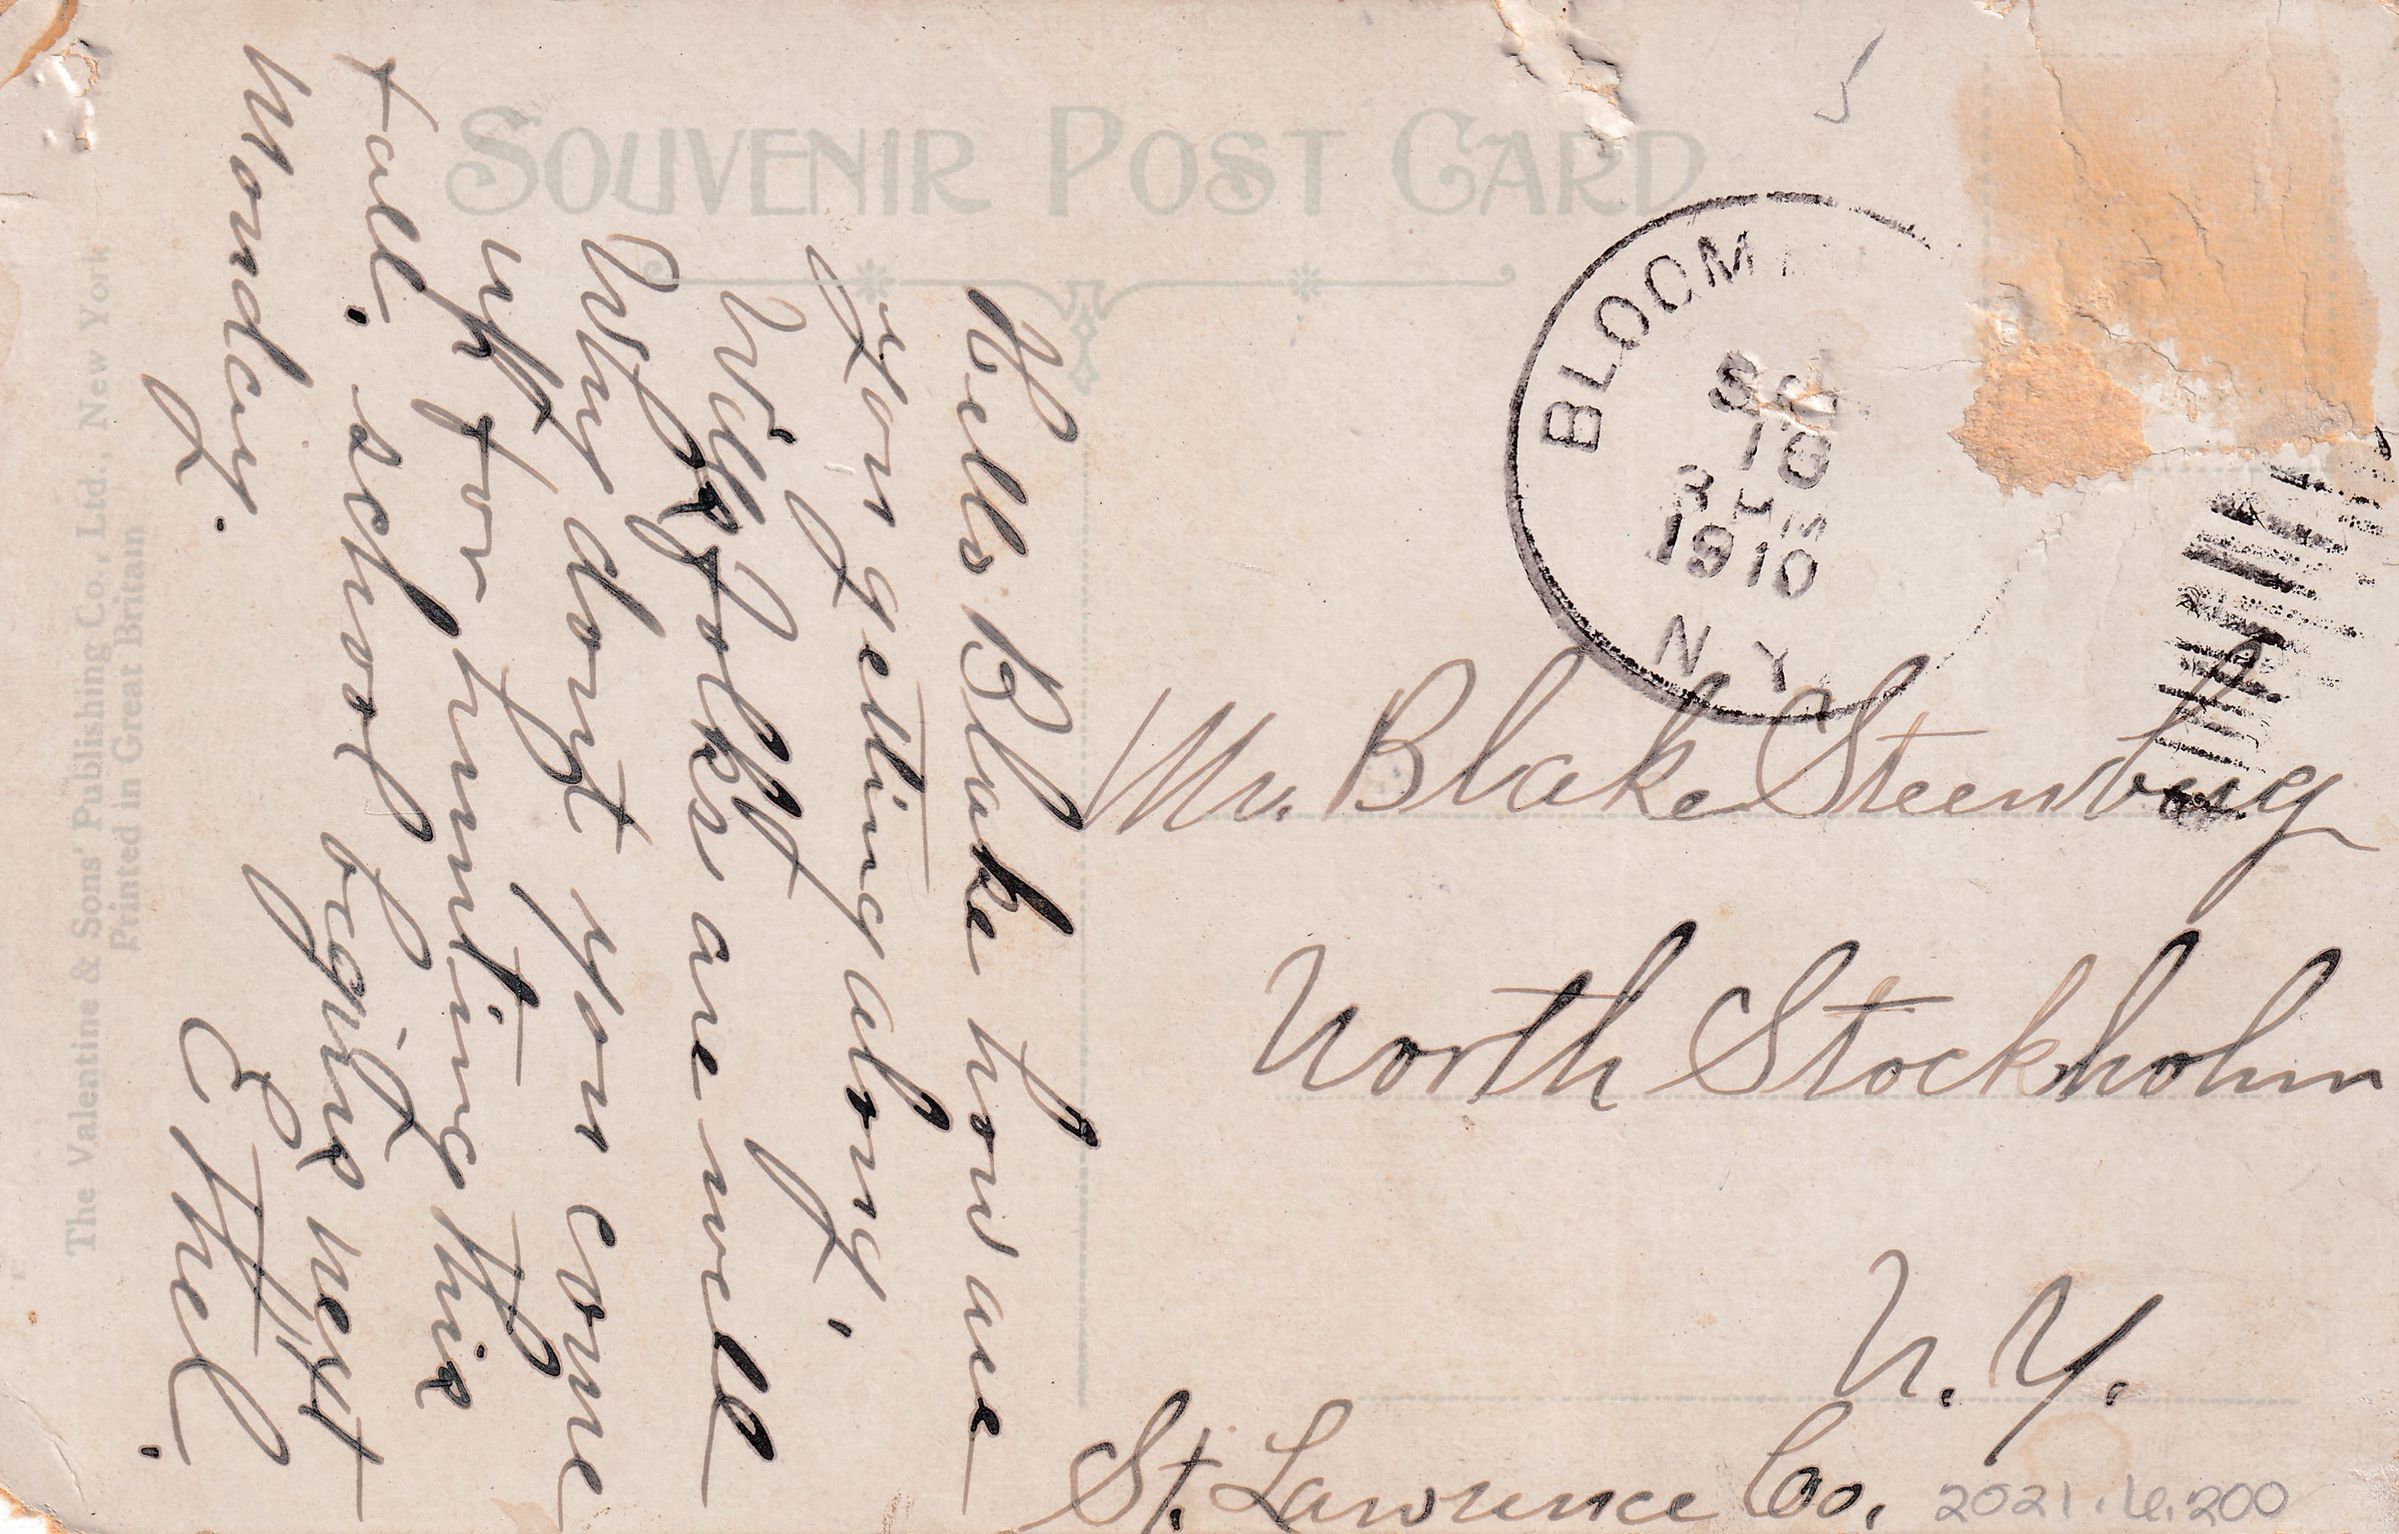 SOUVENIR POST CARD
BLOOM
10
1910
N Y
Mr. Blake Steenberg
North Stockholm
N. Y.
St. Lawrence Co.
2021.16.200
Hello Blake how are
you getting along,
Will folks are well
Why dont you come
up for hunting this
fall. school begins next
Monday.
Ethel.
The Valentine & Sons' Publishing Co., Ltd., New York
Printed in Great Britain